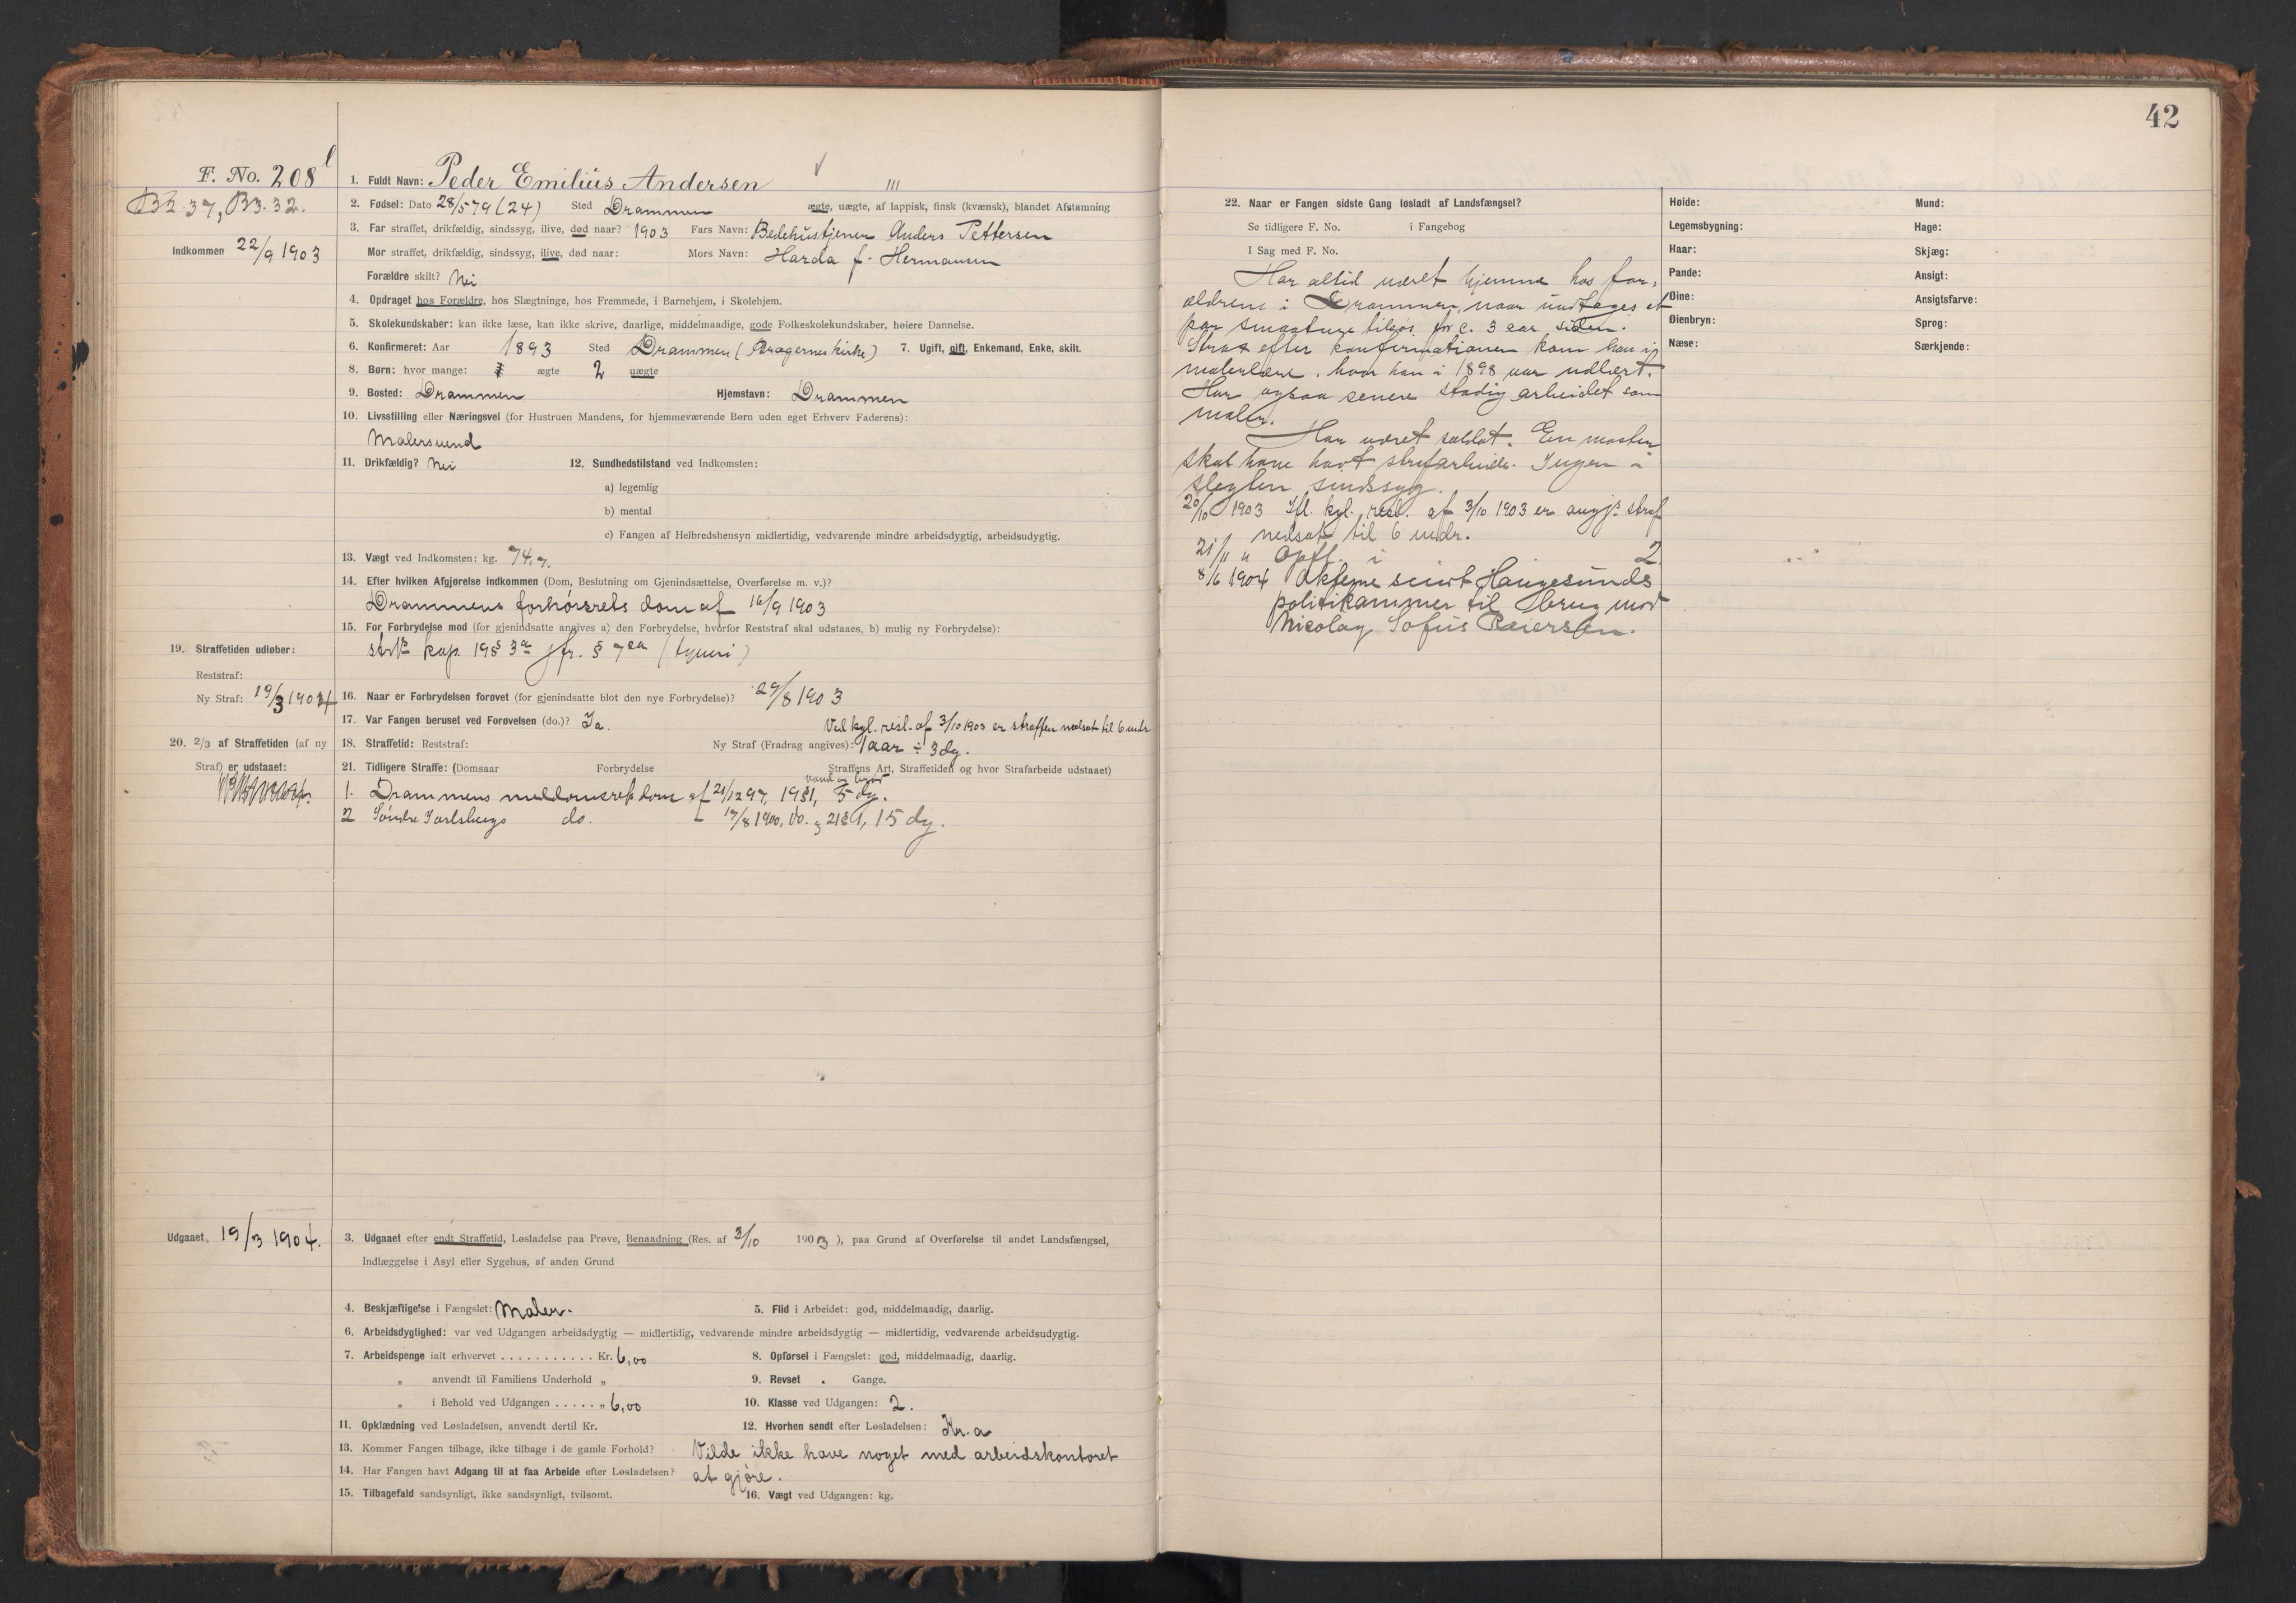 42
F. No. 208
B2. 37, B3. 32.
Indkommen 22/9 1903
1. Fuldt Navn: Peder Emilius Andersen
2. Fødsel: Dato 28/5 79 (24) Sted Drammen ægte, uægte, af lappisk, finsk (kvænsk), blandet Afstamning
3. Far straffet, drikfældig, sindssyg, ilive, død naar? 1903 Fars Navn: Bedehustjener Anders Pettersen
Mor straffet, drikfældig, sindssyg, ilive, død naar: Mors Navn: Harda f. Hermansen
Forældre skilt? Nei
4. Opdraget hos Forældre, hos Slægtninge, hos Fremmede, i Barnehjem, i Skolehjem.
5. Skolekundskaber: kan ikke læse, kan ikke skrive, daarlige, middelmaadige, gode Folkeskolekundskaber, høiere Dannelse.
6. Konfirmeret: Aar 1893 Sted Drammen (Bragernes kirke) 7. Ugift, gift, Enkemand, Enke, skilt.
8. Børn: hvor mange: ægte 2 uægte
9. Bosted: Drammen Hjemstavn: Drammen
10. Livsstilling eller Næringsvei (for Hustruen Mandens, for hjemmeværende Børn uden eget Erhverv Faderens):
Malersvend
11. Drikfældig? Nei 12. Sundhedstilstand ved Indkomsten:
a) legemlig
b) mental
c) Fangen af Helbredshensyn midlertidig, vedvarende mindre arbeidsdygtig, arbeidsudygtig.
13. Vægt ved Indkomsten: kg. 74,7.
14. Efter hvilken Afgjørelse indkommen (Dom, Beslutning om Gjenindsættelse, Overførelse m. v.)?
Drammens forhørsrets dom af 16/9 1903
15. For Forbrydelse mod (for gjenindsatte angives a) den Forbrydelse, hvorfor Reststraf skal udstaaes, b) mulig ny Forbrydelse):
kap. 19 § 3 jfr. § 7 (tyveri)
19. Straffetiden udløber:
Reststraf:
Ny Straf: 19/3 1904
16. Naar er Forbrydelsen forøvet (for gjenindsatte blot den nye Forbrydelse)? 29/8 1903
17. Var Fangen beruset ved Forøvelsen (do.)? Ja.
Ved kgl. resl. af 3/10 1903 er straffen nedsat til 6 mdr
18. Straffetid: Reststraf: Ny Straf (Fradrag angives): 1 aar ÷ 3 dg.
20. 2/3 af Straffetiden (af ny
Straf) er udstaaet:
21. Tidligere Straffe: (Domsaar Forbrydelse Straffens Art, Straffetiden og hvor Strafarbeide udstaaet)
vand og brød
1. Drammens meddomsrets dom af 21/12 97, 19 § 1, 5 dg.
2 Søndre Jarlsbergs do. 17/8 1900, do. 15 dg.
Udgaaet 19/3 1904.
3. Udgaaet efter endt Straffetid, Løsladelse paa Prøve, Benaadning (Res. af 3/10 1903), paa Grund af Overførelse til andet Landsfængsel,
Indlæggelse i Asyl eller Sygehus, af anden Grund
4. Beskjæftigelse i Fængslet: Maler. 5. Flid i Arbeidet: god, middelmaadig, daarlig.
6. Arbeidsdygtighed: var ved Udgangen arbeidsdygtig — midlertidig, vedvarende mindre arbeidsdygtig — midlertidig, vedvarende arbeidsudygtig.
7. Arbeidspenge ialt erhvervet . . . . . . . . . . . Kr. 6,00 8. Opførsel i Fængslet: god, middelmaadig, daarlig.
„ anvendt til Familiens Underhold „ 9. Revset . Gange.
„ i Behold ved Udgangen . . . . . „ 6,00 10. Klasse ved Udgangen: 2.
11. Opklædning ved Løsladelsen, anvendt dertil Kr. 12. Hvorhen sendt efter Løsladelsen: Kr.a
13. Kommer Fangen tilbage, ikke tilbage i de gamle Forhold? Vilde ikke have noget med arbeidskontoret
14. Har Fangen havt Adgang til at faa Arbeide efter Løsladelsen? at gjøre.
15. Tilbagefald sandsynligt, ikke sandsynligt, tvilsomt. 16. Vægt ved Udgangen: kg.
22. Naar er Fangen sidste Gang løsladt af Landsfængsel?
Se tidligere F. No. i Fangebog
I Sag med F. No.
Har altid været hjemme hos for-
ældrene i Drammen, naar undtages et
par smaature tilsjøs for c. 3 aar siden.
Strax efter konfirmationen kom han i
malerlære, hvor han i 1898 var udlært.
Har ogsaa senere stadig arbeidet som
maler.
Har været soldat. En moster
skal have havt strafarbeide. Ingen i
slegten sindssyg.
20/10 1903 Ifl. kgl. resl. af 3/10 1903 er straf
nedsat til 6 mdr.
21/11 " Opfl. i 2
8/6 1904 Akterne sendt Haugesunds
politikammer til brug mod
Nicolay Sofus Reiersen.
Høide:
Legemsbygning:
Haar:
Pande:
Øine:
Øienbryn:
Næse:
Mund:
Hage:
Skjæg:
Ansigt:
Ansigtsfarve:
Sprog:
Særkjende: